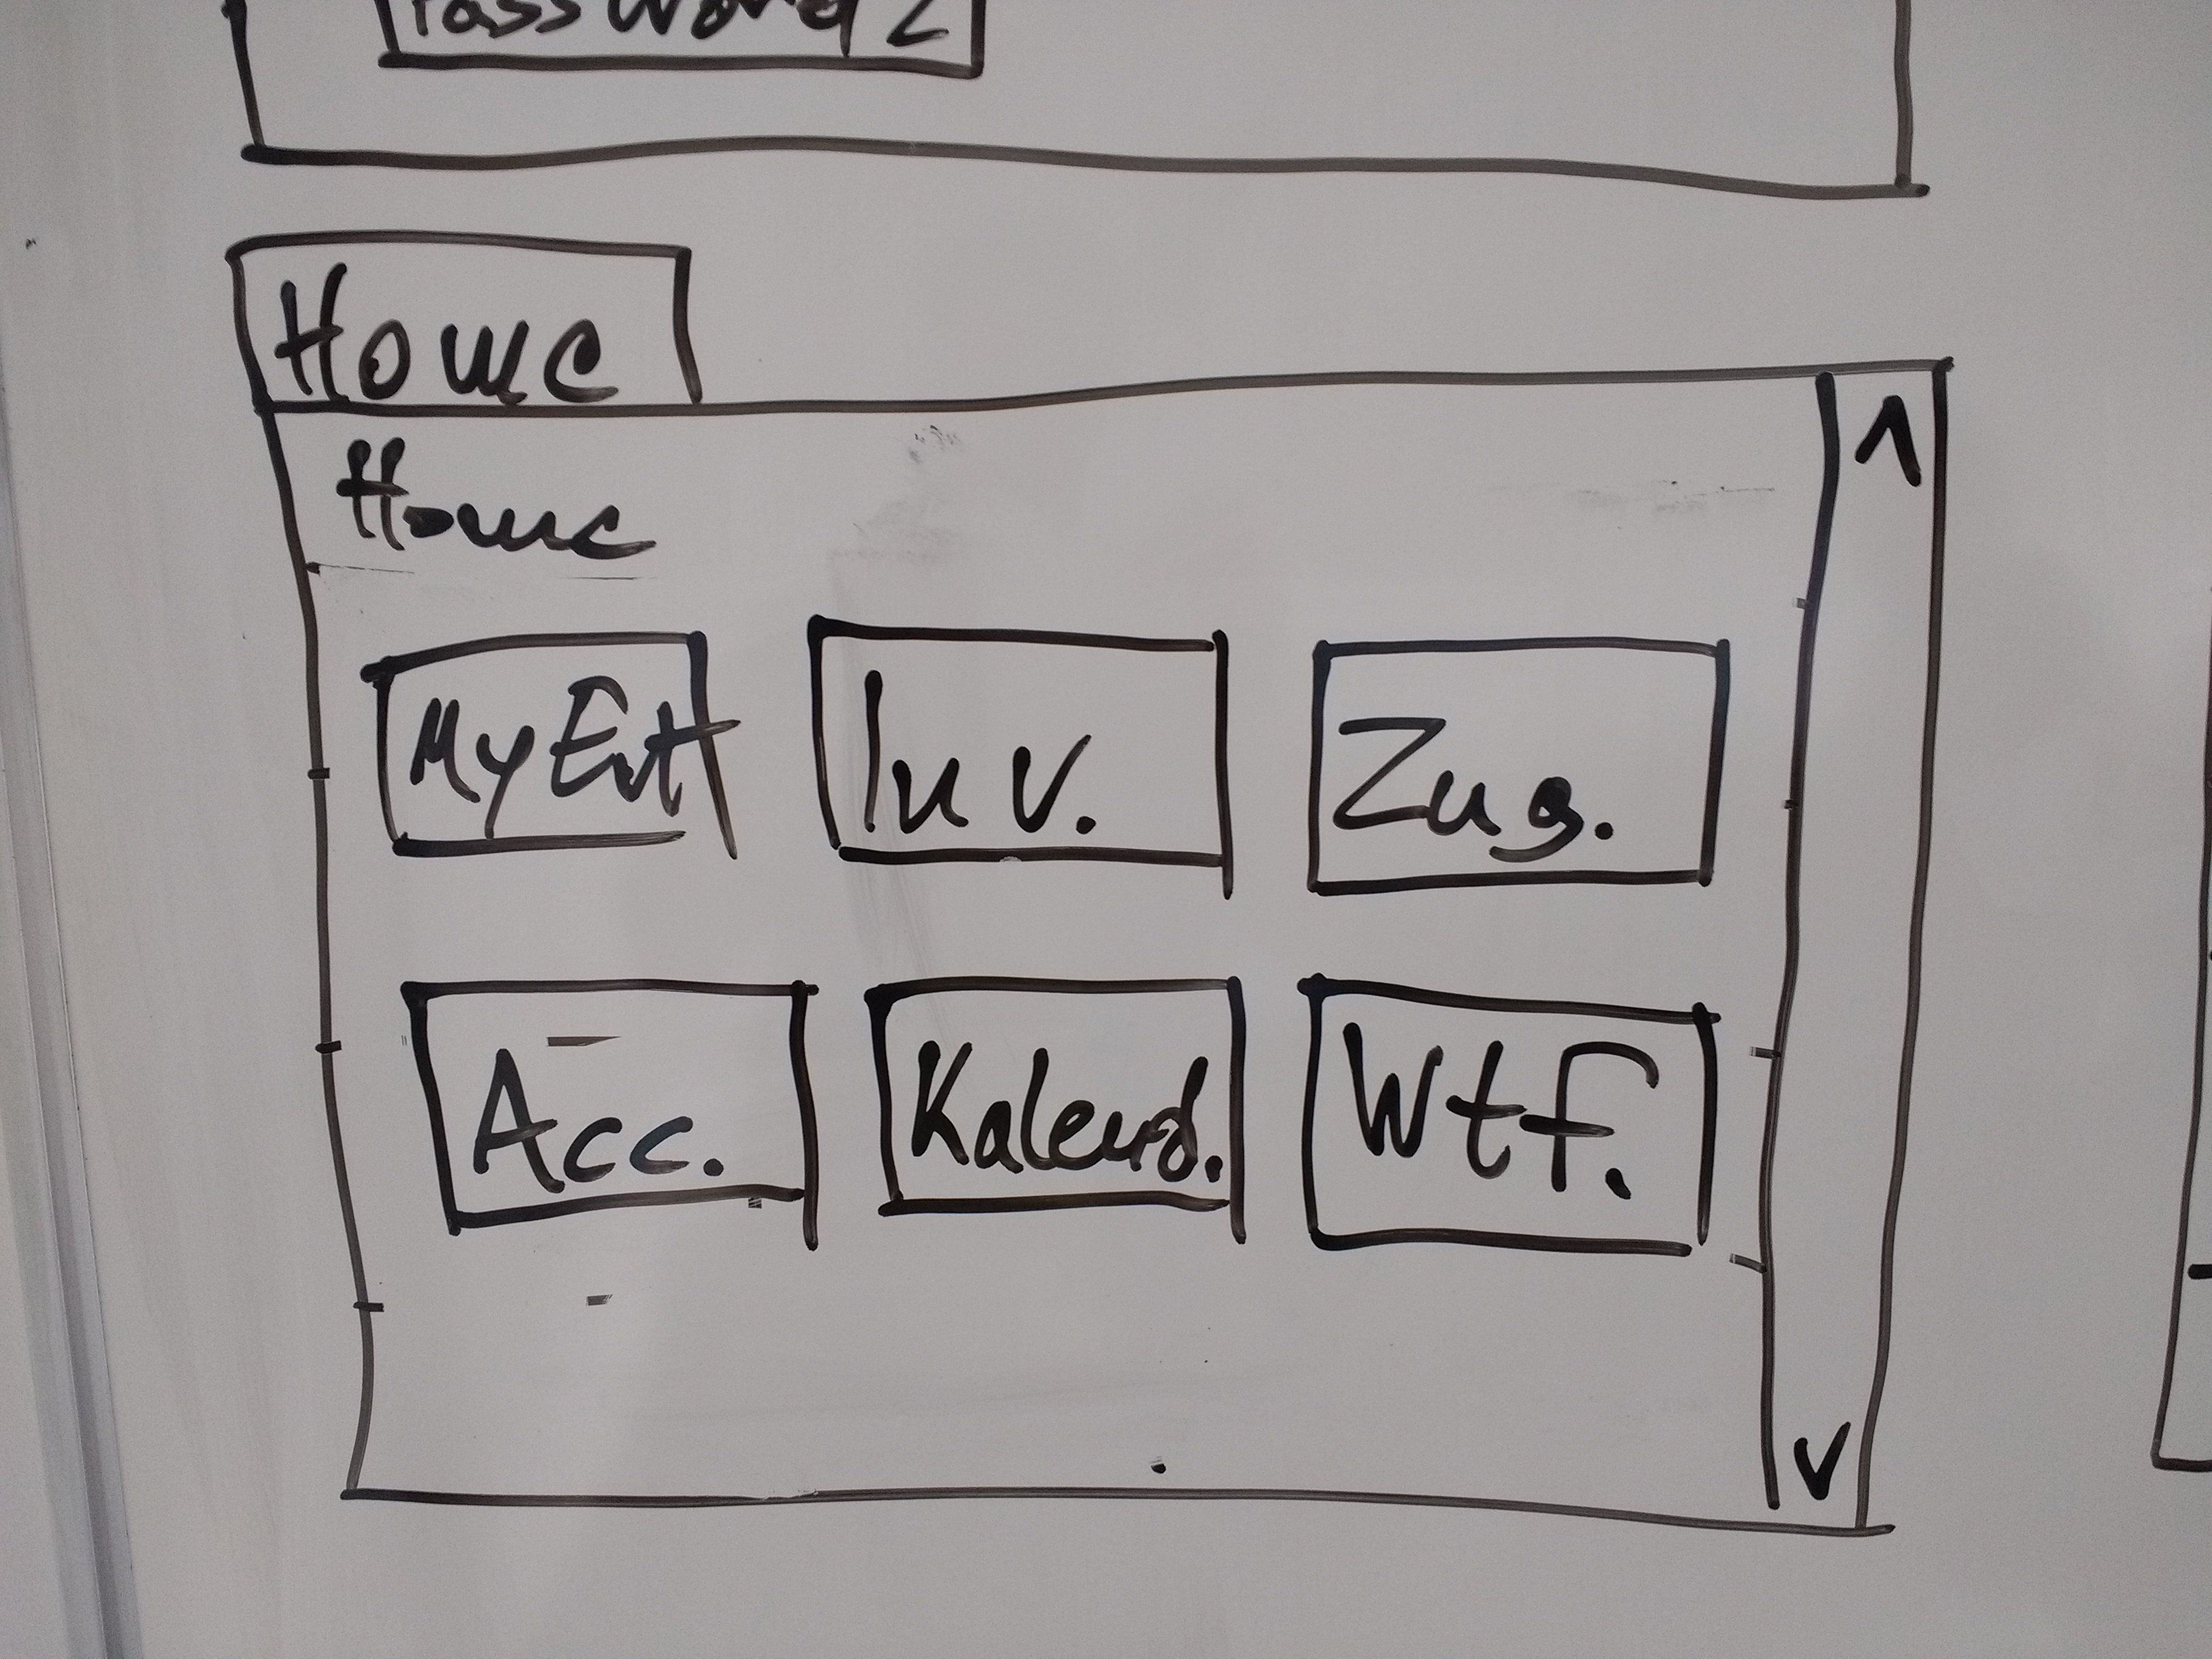 Password 2
Home
Home
My Evt
Inv.
Zug.
Acc.
Kalend.
Wtf.